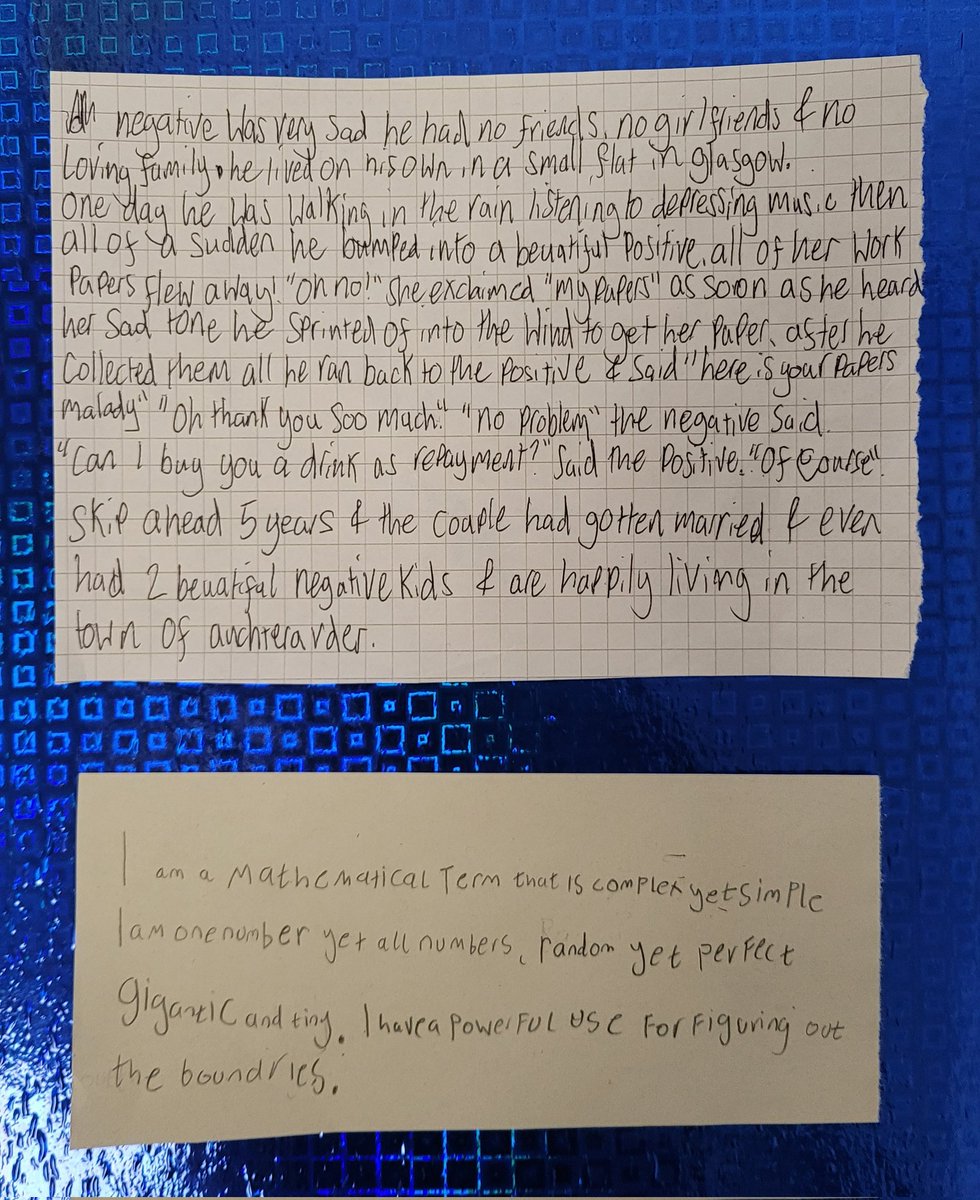 negative was very sad he had no friends, no girlfriends & no
loving family. he lived on his own in a small flat in glasgow.
one day he was walking in the rain listening to depressing music then
all of a sudden he bumped into a beutiful Positive, all of her work
Papers flew away! "oh no!" she exclaimed "my papers" as soon as he heard
her sad tone he sprinted of into the wind to get her paper, after he
collected them all he ran back to the positive & said "here is your papers
malady" "Oh thank you soo much." "no problem" the negative said.
"Can I buy you a drink as repayment?" said the positive. "Of course".
skip ahead 5 years & the couple had gotten married & even
had 2 beuatiful negative kids & are happily living in the
town of auchterarder.
I am a Mathematical Term that is complex yet simple
I am one number yet all numbers, random yet perfect
gigantic and tiny. I have a powerful use for figuring out
the boundries.